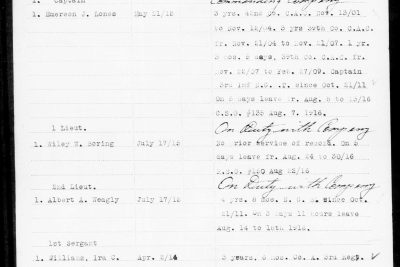 1. Captain Commanding Company
1. Emerson J. Lones May 21/15 3 yrs. 42nd Co. C.A.C. Nov. 13/01
to Nov. 12/04. 3 yrs 39th Co. C.A.C.
fr. Nov. 21/04 to Nov. 21/07. 1 yr.
3 mos. 5 days, 39th Co. C.A.C. fr.
Nov. 22/07 to Feb. 27/09. Captain
3rd Inf. since Oct. 21/11
On 8 days leave fr. Aug. 8 to 15/16
#135 Aug. 7, 1916.
1 Lieut. On Duty with Company
1. Wiley W. Boring July 17/15 No prior service of record. On 5
days leave fr. Aug. 24 to 30/16
#150 Aug 23/16
2nd Lieut. On Duty with Company
1. Albert A. Weagly July 17/15 4 yrs. 8 mos. since Oct.
21/11. On 3 days 11 hours leave
Aug. 14 to 18th 1916.
1st Sergant
1. Williams, Ira C. Apr. 8/14 3 years, 6 mos. Co. A. 3rd Regt.